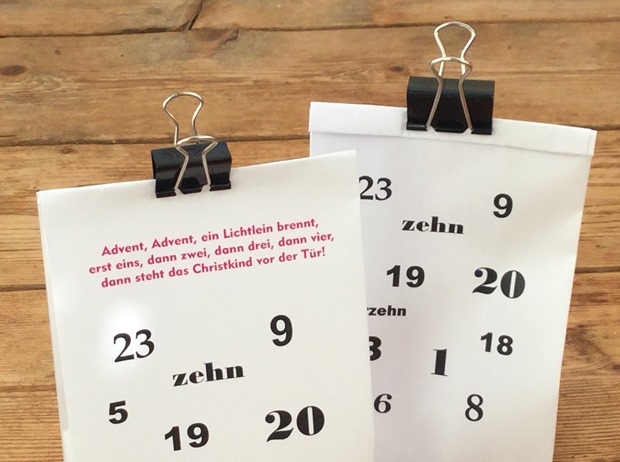 Advent, Advent, ein Lichtlein brennt,
erst eins, dann zwei, dann drei, dann vier,
dann steht das Christkind vor der Tür!
23 9
zehn
5 19 20
23 9
zehn
19 20
zehn
3 1 18
6 8